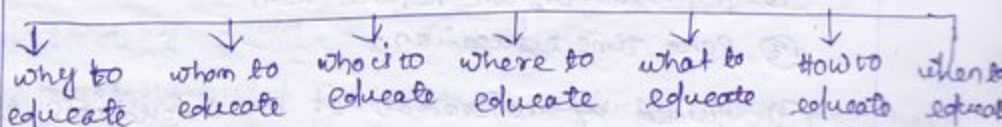 why to educate
whom to educate
who is to educate
where to educate
what to educate
How to educate
when to